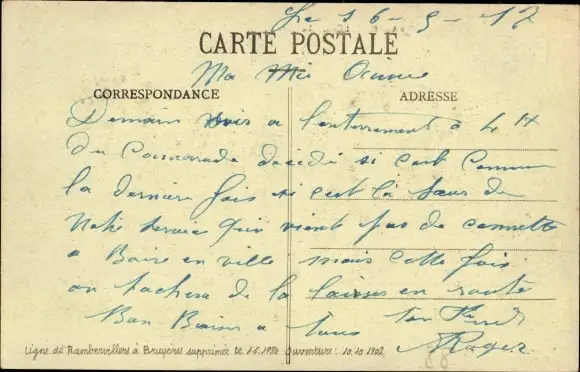 Le 16-9-17
CARTE POSTALE
Ma
CORRESPONDANCE
ADRESSE
Demain vais a l'enterrement à 4 H
du Camarade décidé si c'est Comme
la dernière fois si c'est la sœur de
Notre qui vient pas de
a Boire en ville mais cette fois
on tachera de la laisser en route
Bon Baiser a tous ton
Roger
Ligne de Rambervillers à Bruyères supprimée le 1.6.1980 Ouverture: 10.10.1902